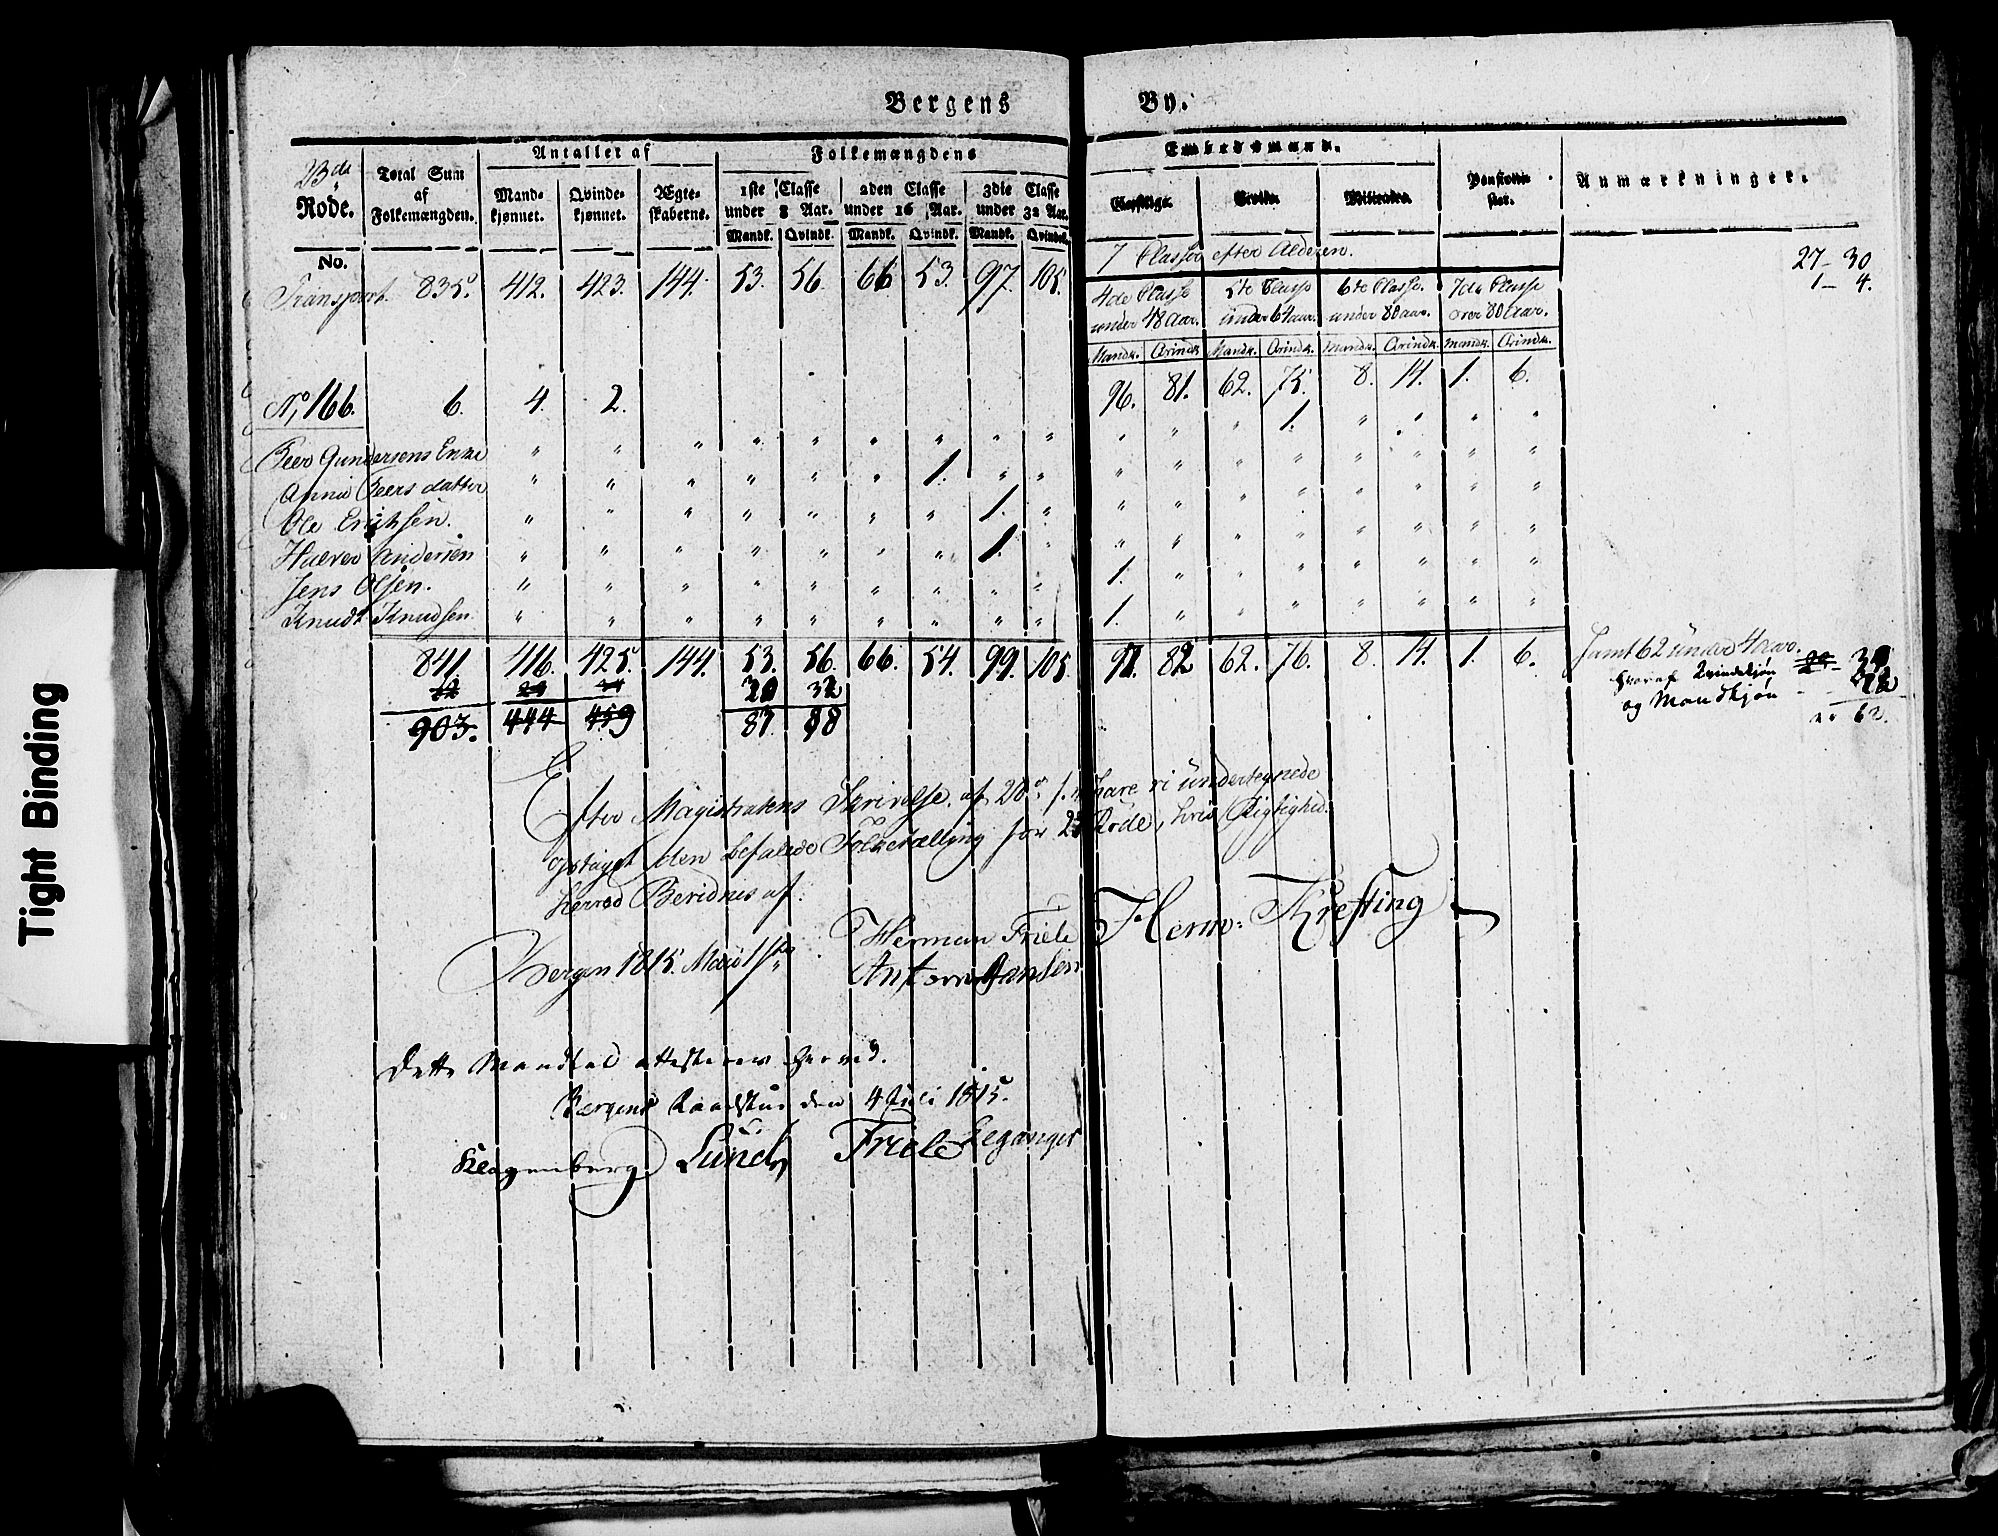 Bergens By.
23de Rode. Total Sum af Folkemængden. Antallet af Folkemængdens Embedsmænd. Anmærkninger.
Mandkjønnet. Qvindekjønnet. Ægteskaberne. 1ste Classe under 8 Aar. 2den Classe under 16 Aar. 3die Classe under 32 Aar. Geistlige. Civile. Militaire.
Mandk. Qvindk. Mandk. Qvindk. Mandk. Qvindk.
No.
7 Classer efter Alderen. 27 - 30
1 - 4.
4de Classe under 48 Aar. 5te Classe under 64 aar. 6te Classe under 80 aar. 7de Classe over 80 Aar.
Mandk. Qvindk. Mandk. Qvindk. Mandk. Qvindk. Mandk. Qvindk.
Transport 835. 412. 423. 144. 53. 56. 66. 53. 97. 105. 96. 81. 62. 75. 8. 14. 1. 6.
No 166. 6. 4. 2.
Peer Gundersens Enke 1.
Anna Peers datter 1.
Ole Erichsen. 1.
Halvor Andersen 1.
Jens Olsen. 1.
Knudt Knudsen 1.
841. 416. 425. 144. 53. 56. 66. 54. 99. 105. 98. 82 62. 76. 8. 14. 1. 6. Samt 62 under 4 aar.
hvoraf Qvindekjøn
og Mandkjøn
er 62.
903. 444 459
Efter Magistratens Skrivelse af 28de f. M. have vi undertegnede
optaget den befalede Folketælling for 23 Rode, hvis Rigtighed
herved Bevidnes af.
Bergen 1815. Herman Friele Herm: Krefting
Anton Jansen
Dette Mandtal attesteres herved.
Bergens Raadstue den 4 Juli 1815.
Klagenberg Lund Friele Leganger
Tight Binding